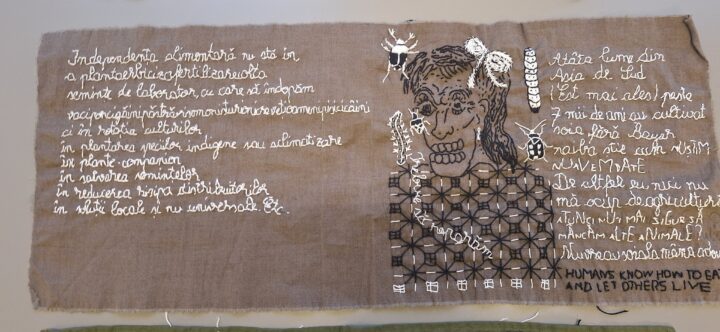 Independența alimentară nu stă în
a planta erbiciza fertiliza recolta
semințe de laborator, cu care să îndopăm
vaci porci găini păstrăvi somoni
ci în rotația culturilor
în plantarea speciilor indigene sau aclimatizare
în plante companion
în salvarea semințelor
în reducerea risipa distribuitorilor
în soluții locale și nu universale. Etc.
Trebuie să reparăm
Atâta lume din
Asia de Sud
(Est mai ales) peste
7 mii de ani au cultivat
soia fără Bayer
naiba știe cum NUȘTIM
NU AVEM
De altfel eu nici nu
mă ocup de agricultură
ATUNCI NU E MAI SIGUR SĂ
MÂNCĂM ALTE ANIMALE?
Nu vreau soia la mâna a doua
HUMANS KNOW HOW TO EAT
AND LET OTHERS LIVE